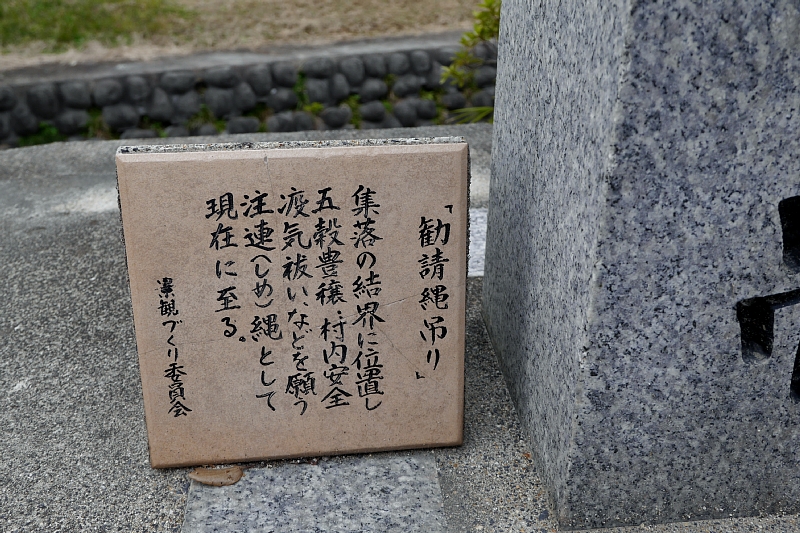 「勧請縄吊り」
集落の結界に位置し
五穀豊穣・村内安全
疫気祓いなどを願う
注連(しめ)縄として
現在に至る。
景観づくり委員会